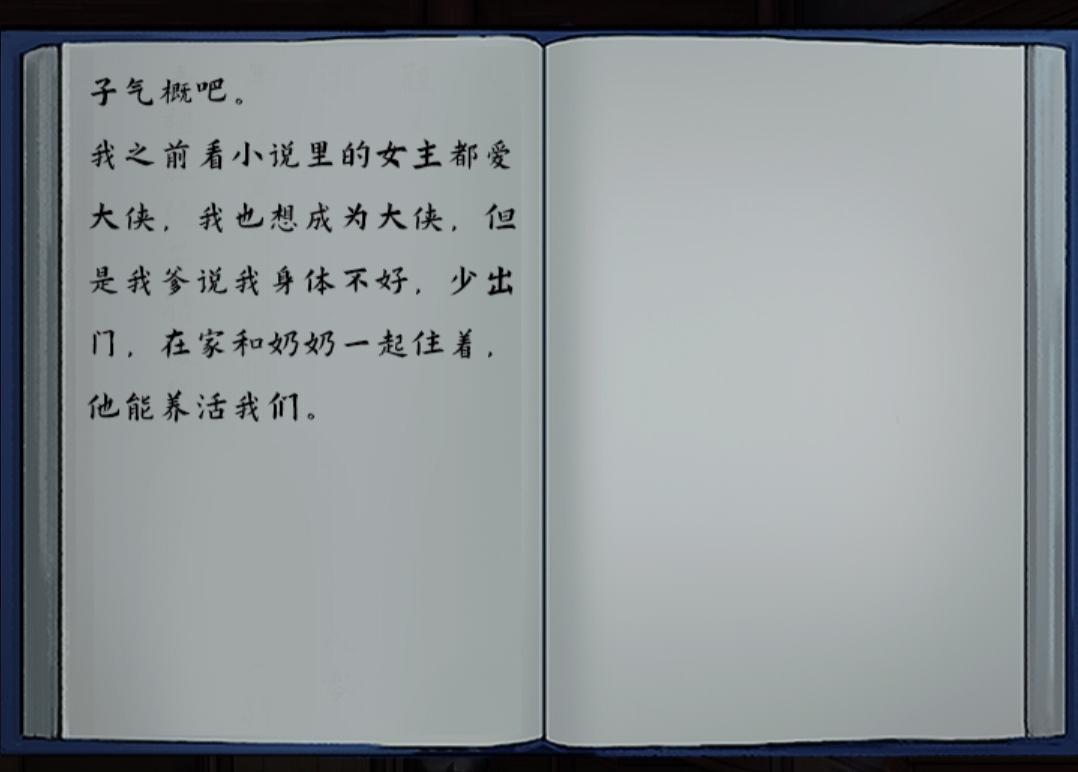 子气概吧。
我之前看小说里的女主都爱
大侠，我也想成为大侠，但
是我爹说我身体不好，少出
门，在家和奶奶一起住着，
他能养活我们。